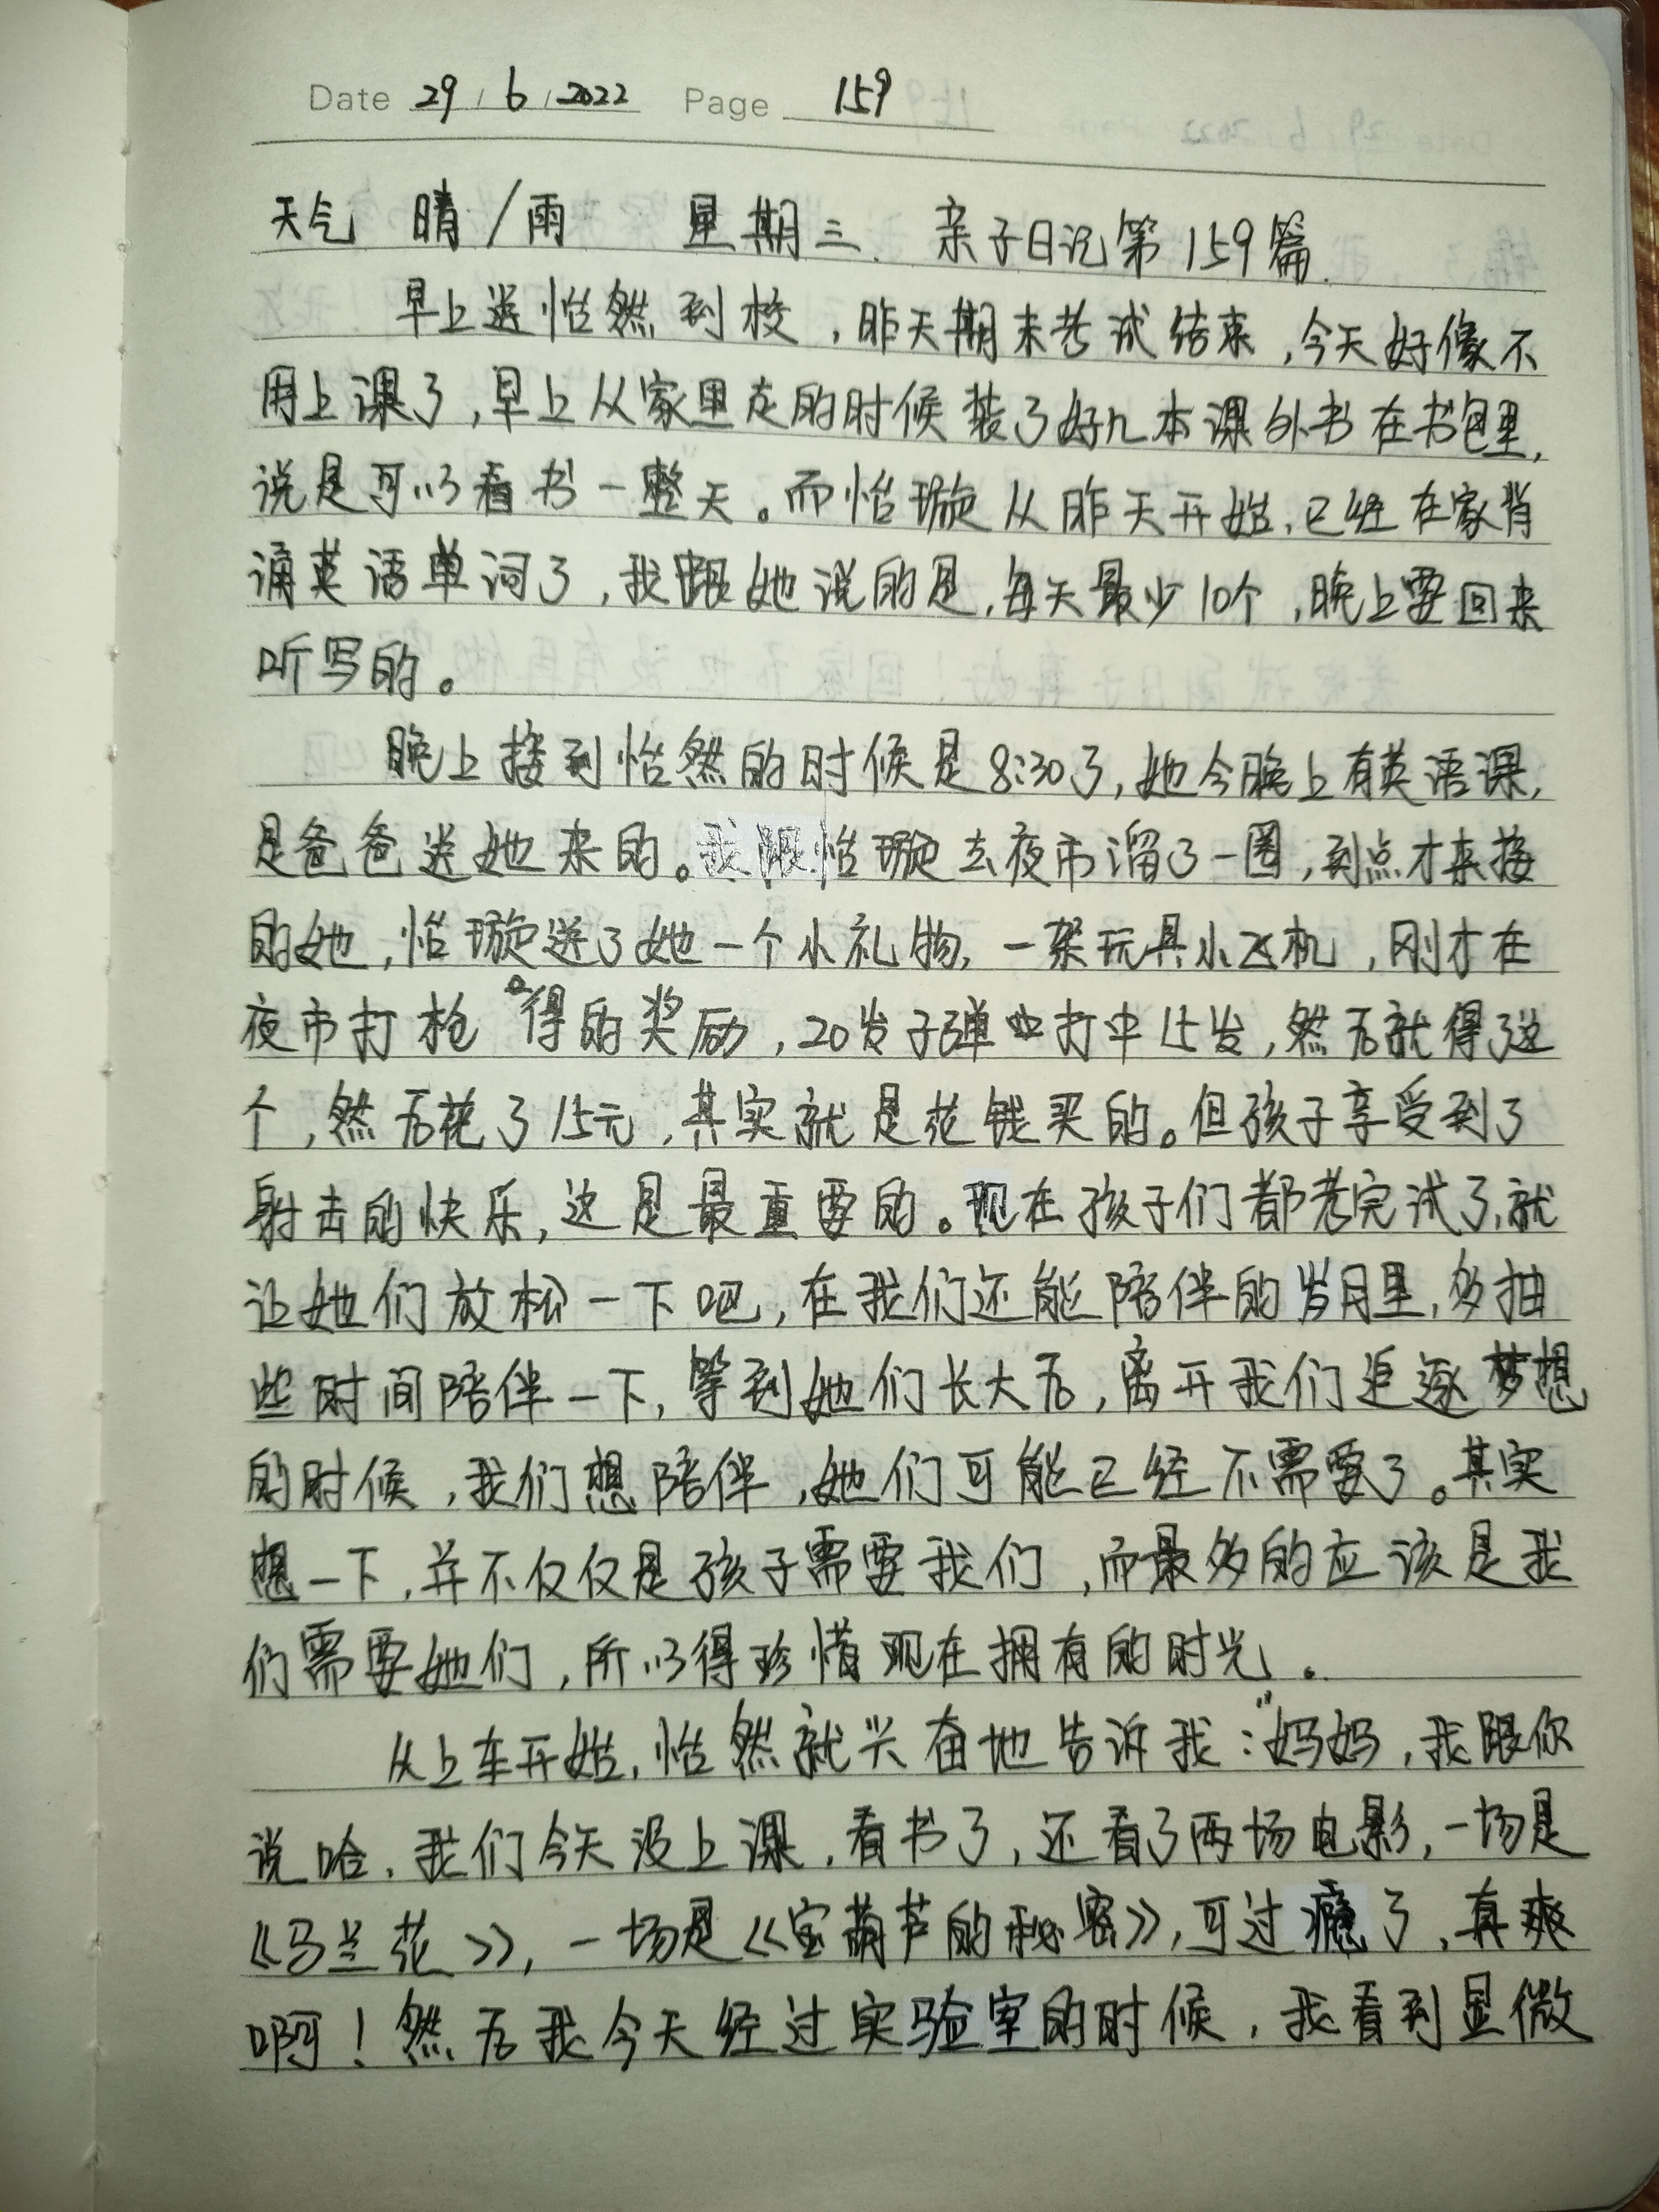 Date 29 / 6 / 2022 Page 159
天气 晴/雨 星期三. 亲子日记第159篇.
早上送怡然到校,昨天期末考试结束,今天好像不
用上课了,早上从家里走的时候装了好几本课外书在书包里,
说是可以看书一整天。而怡璇从昨天开始,已经在家背
诵英语单词了,我跟她说的是,每天最少10个,晚上要回来
听写的。
晚上接到怡然的时候是8:30了,她今晚上有英语课,
是爸爸送她来的。我跟怡璇去夜市溜了一圈,到点才来接
的她,怡璇送了她一个小礼物,一架玩具小飞机,刚才在
夜市打枪得的奖励,20发子弹中打中15发,然后就得了这
个,然后花了15元,其实就是花钱买的。但孩子享受到了
射击的快乐,这是最重要的。现在孩子们都考完试了,就
让她们放松一下吧,在我们还能陪伴的岁月里,多抽
些时间陪伴一下,等到她们长大后,离开我们追逐梦想
的时候,我们想陪伴,她们可能已经不需要了。其实
想一下,并不仅仅是孩子需要我们,而最多的应该是我
们需要她们,所以得珍惜现在拥有的时光。
从上车开始,怡然就兴奋地告诉我:“妈妈,我跟你
说哈,我们今天没上课,看书了,还看了两场电影,一场是
《马兰花》,一场是《宝葫芦的秘密》,可过瘾了,真爽
啊!然后我今天经过实验室的时候,我看到显微